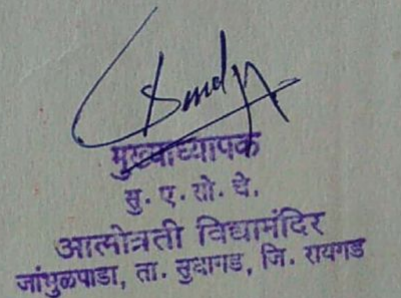 मुख्याध्यापक
सु. ए. सो. चे.
आत्मोन्नती विद्यामंदिर
जांभुळपाडा, ता. सुधागड, जि. रायगड